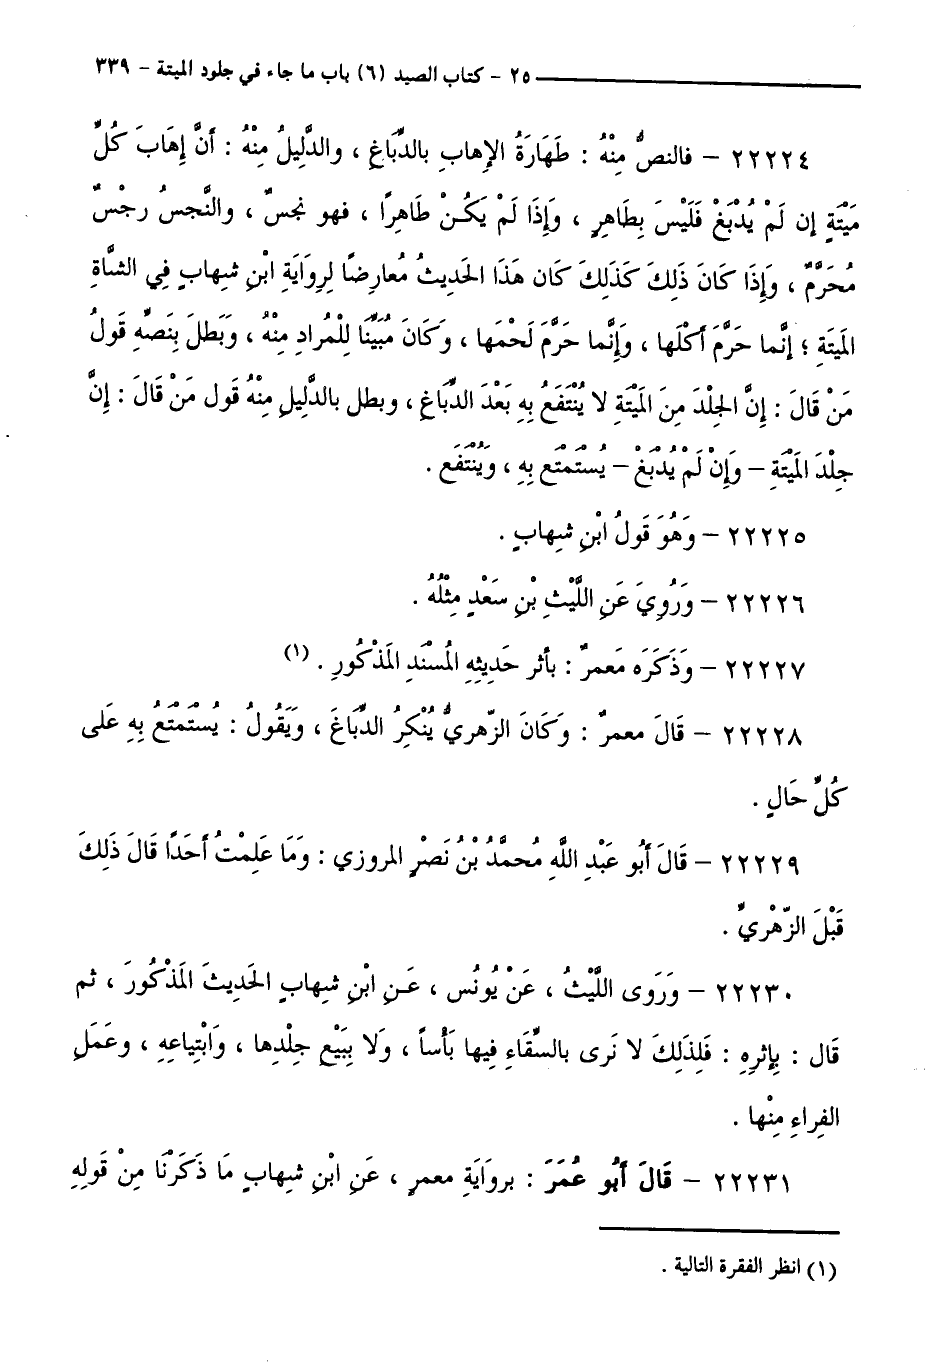 ٢٥ - كتاب الصيد (٦) باب ما جاء في جلود الميتة - ٣٣٩
٢٢٢٢٤ – فالنصُّ مِنْهُ : طَهَارَةُ الإهابِ بالدِّبَاغِ ، والدَّلِيلُ مِنْهُ : أنَّ إِهَابَ كُلِّ
مَيْتَةٍ إن لَمْ يُدْبَغْ فَلَيْسَ بِطَاهِرٍ ، وَإِذَا لَمْ يَكُـنْ طَاهِرًا ، فهو نجسٌ ، والنَّجسُ رِجْسٌ
مُحَرَّمٌ ، وَإِذَا كَانَ ذَلِكَ كَذَلِكَ كَان هَذَا الحَديثُ مُعارِضًا لِروَايَةِ ابْنِ شِهابٍ فِي الشَّاةِ
المَيتَةِ ؛ إنَّما حَرَّمَ أكْلَها ، وَإِنَّما حَرَّمَ لَحْمَها ، وَكَانَ مُبَيِّنًا لِلْمُرادِ مِنْهُ ، وَبَطلَ بِنَصِّهِ قَولُ
مَنْ قَالَ : إِنَّ الجِلْدَ مِنَ المَيْتَةِ لا يُنْتَفَعُ بِهِ بَعْدَ الدِّبَاغِ ، وبطل بالدَّلِيلِ مِنْهُ قَول مَنْ قَالَ : إِنَّ
جِلْدَ المَيْتَةِ – وَإِنْ لَمْ يُدْبَغْ – يُسْتَمْتَع بِهِ ، وَيُنْتَفَع .
٢٢٢٢٥ – وَهُوَ قَولُ ابْنِ شِهابٍ .
٢٢٢٢٦ – وَرُوِيَ عَنِ اللَّيْثِ بْنِ سَعْدٍ مِثْلُهُ .
٢٢٢٢٧ – وَذَكَرَه مَعمرٌ : بأثر حَدِيثِهِ المُسْنَدِ المَذْكُورِ . (١)
٢٢٢٢٨ – قَالَ معمرٌ : وَكَانَ الزّهريُّ يُنْكِرُ الدِّبَاغَ ، وَيَقُولُ : يُسْتَمْتَعُ بِهِ عَلَى
كُلِّ حَالٍ .
٢٢٢٢٩ – قَالَ أَبُو عَبْدِ اللَّهِ مُحمَّدُ بْنُ نَصْرٍ المروزي : وَمَا عَلِمْتُ أحَدًا قَالَ ذَلِكَ
قَبْلَ الزّهْريِّ .
٢٢٢٣٠ – وَرَوَى اللَّيْثُ ، عَنْ يُونُس ، عَـنِ ابْنِ شِهابٍ الحَدِيثَ المَذْكُورَ ، ثم
قَال : بِإثرِهِ : فَلِذَلِكَ لا نَرى بالسِّقَاءِ فِيها بَأْساً ، وَلا بِبَيْعِ جِلْدِها ، وَابْتِياعِهِ ، وعَمَلِ
الفِراءِ مِنْها .
٢٢٢٣١ – قَالَ أَبُو عُمَرَ : بروَايَةِ معمرٍ ، عَنِ ابْنِ شِهابٍ مَا ذَكَرْنَا مِنْ قَولِهِ
(١) انظر الفقرة التالية .